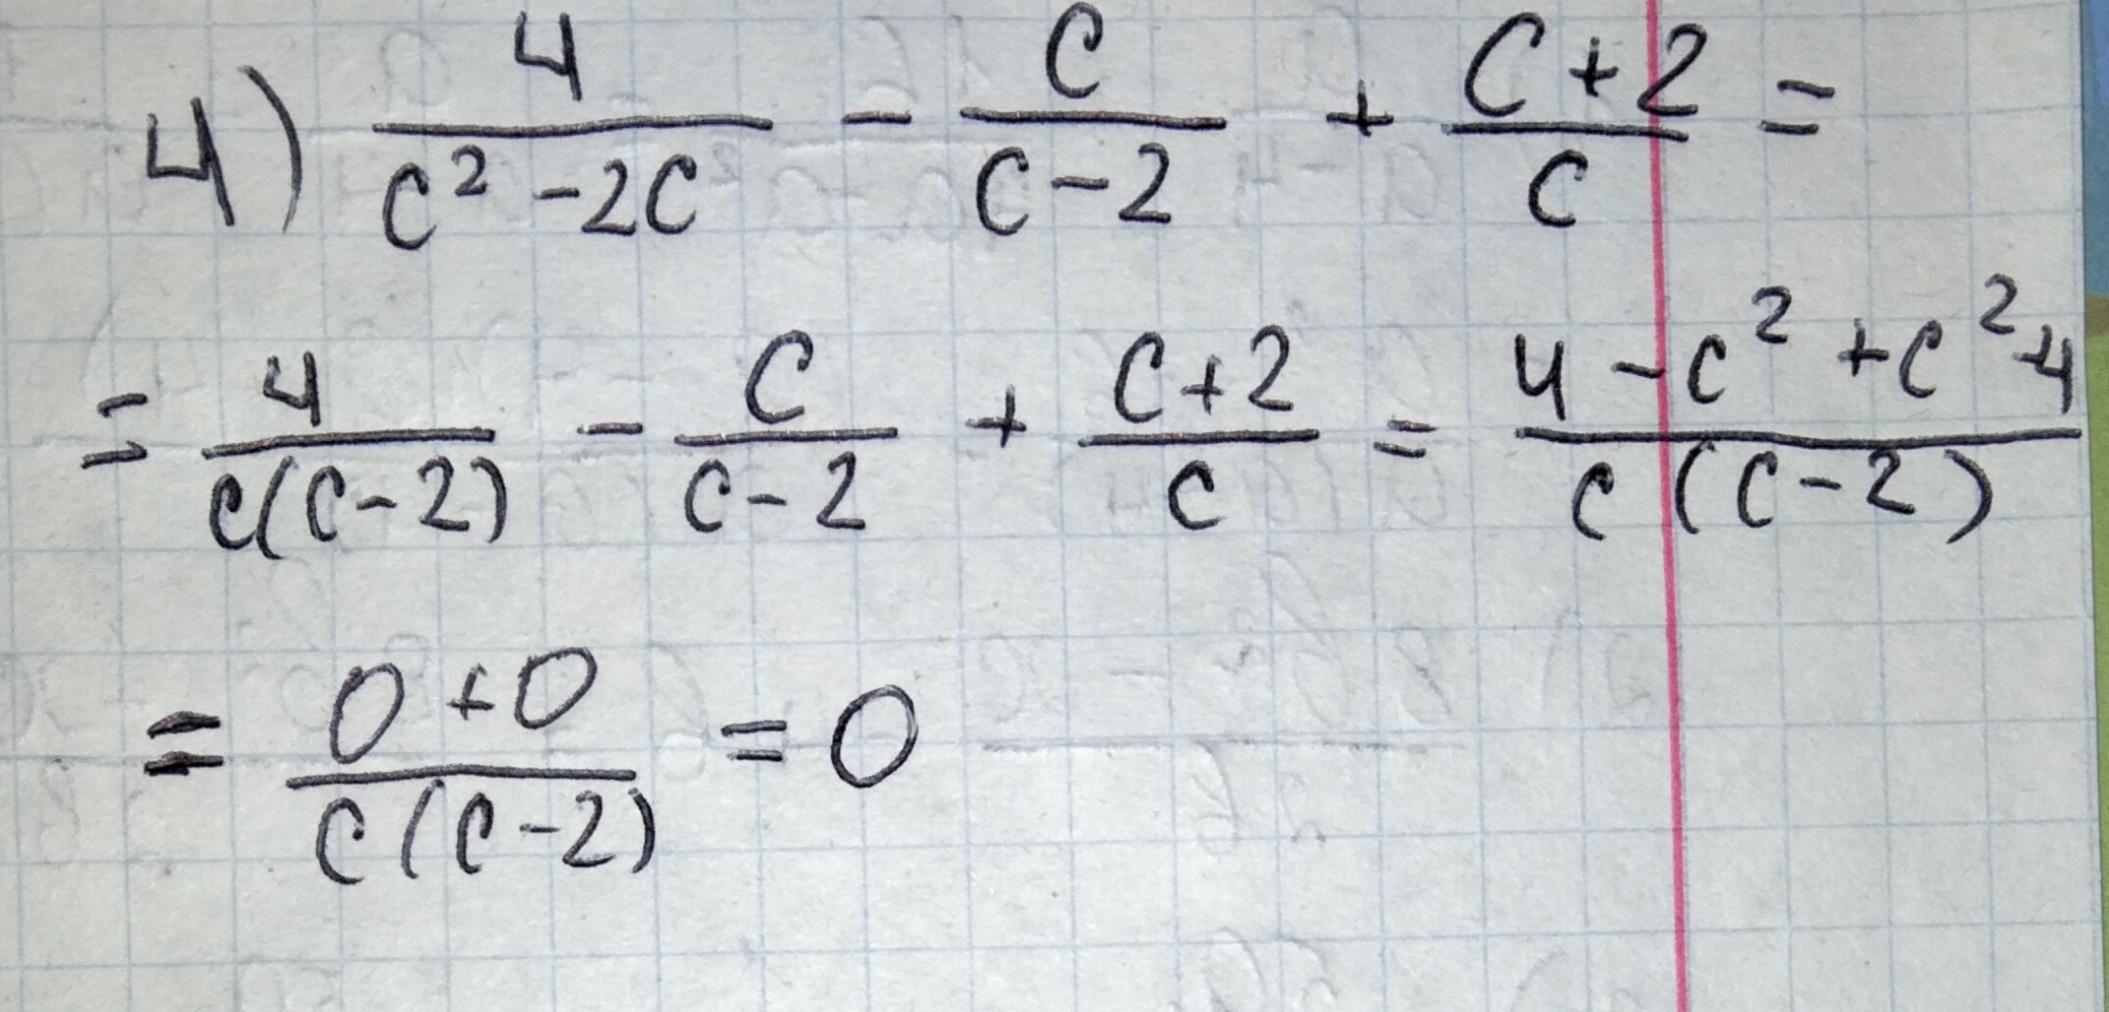 4) 4/(c² - 2c) - c/(c - 2) + (c + 2)/c =
= 4/(c(c - 2)) - c/(c - 2) + (c + 2)/c = (4 - c² + c² - 4)/(c(c - 2))
= (0 + 0)/(c(c - 2)) = 0